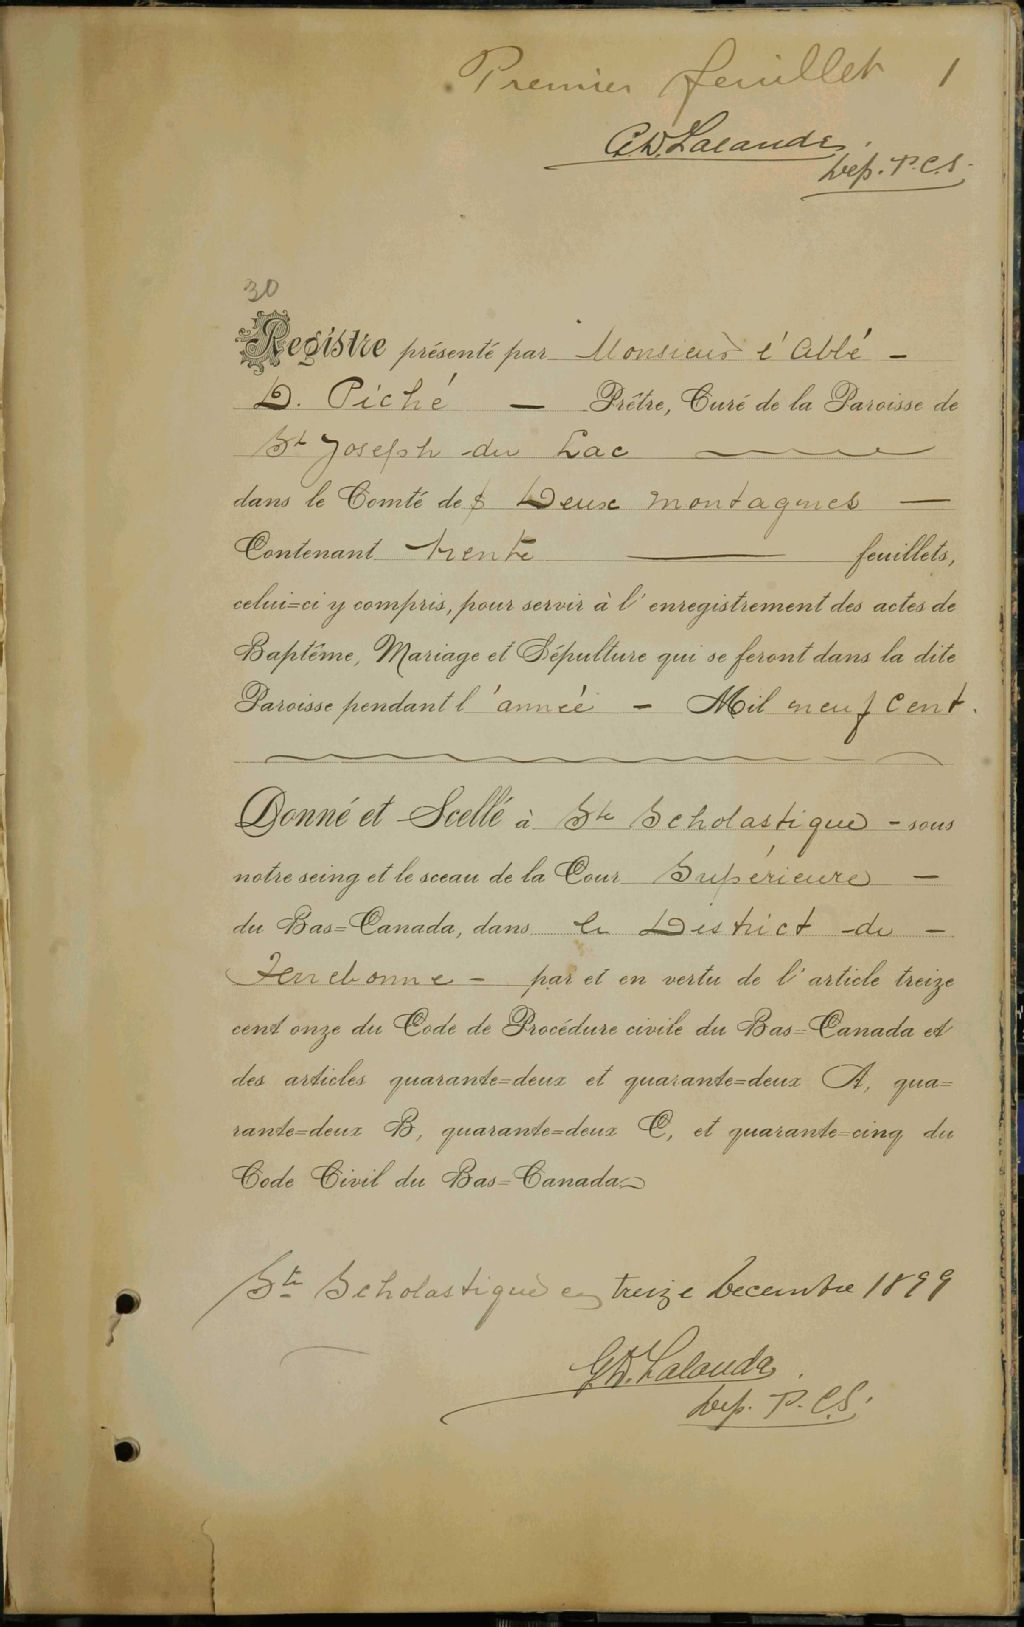 Premier feuillet 1
G.W. Lalande.
Dep. P.C.S.
30
Registre présenté par Monsieur l'Abbé -
D. Piché - Prêtre, Curé de la Paroisse de
St Joseph du Lac
dans le Comté de $ Deux Montagnes -
Contenant trente feuillets,
celui=ci y compris, pour servir à l'enregistrement des actes de
Baptême, Mariage et Sépulture qui se feront dans la dite
Paroisse pendant l'année - Mil neuf Cent.
Donné et Scellé à Ste Scholastique - sous
notre seing et le sceau de la Cour Supérieure -
du Bas=Canada, dans le District de -
Terrebonne - par et en vertu de l'article treize
cent onze du Code de Procédure civile du Bas=Canada et
des articles quarante=deux et quarante=deux A, qua=
rante=deux B, quarante=deux C, et quarante=cinq du
Code Civil du Bas=Canada.
Ste Scholastique ce treize Decembre 1899
G.W. Lalande.
Dep. P.C.S.